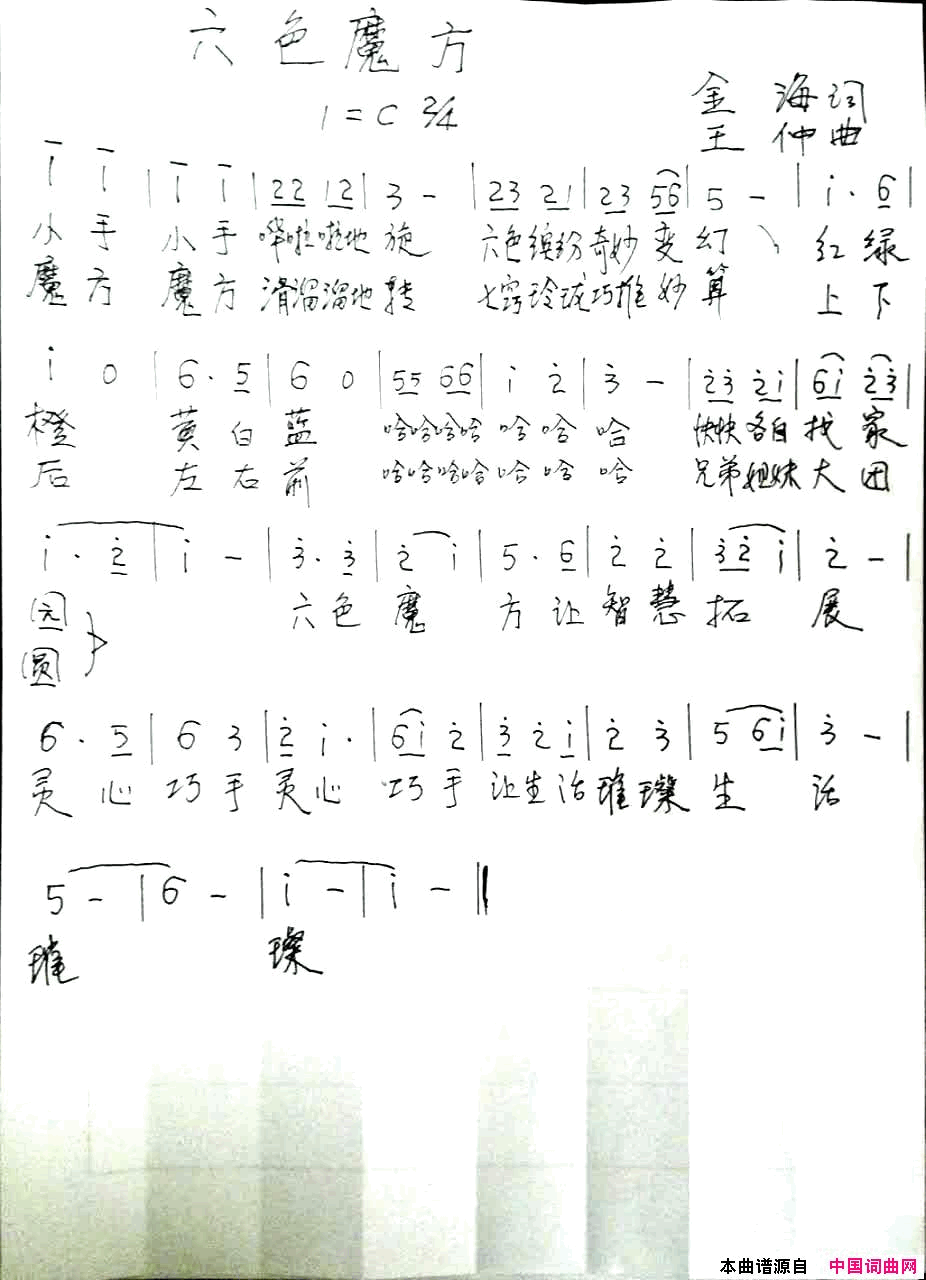 六色魔方
1=C 2/4
金海词
王仲曲
i i | i i | 22 12 | 3 - | 23 21 | 23 56 | 5 - | i· 6 |
小手 小手 哗啦啦地 旋 六色缤纷奇妙变幻 红绿
魔方 魔方 滑溜溜地 转 七窍玲珑巧推妙算 上下
i 0 | 6· 5 | 6 0 | 55 66 | i 2 | 3 - | 23 2i | 6i 23 |
橙 黄白蓝 哈哈哈哈 哈哈哈 快快各自找家
后 左右前 哈哈哈哈 哈哈哈 兄弟姐妹大团
i· 2 | i - | 3· 3 | 2 i | 5· 6 | 2 2 | 32 i | 2 - |
园 六色魔方让智慧拓展
圆
6· 5 | 6 3 | 2 i· | 6i 2 | 3 2 i | 2 3 | 5 6i | 3 - |
灵心巧手灵心巧手让生活璀璨生活
5 - | 6 - | i - | i - ‖
璀璨
本曲谱源自 中国词曲网